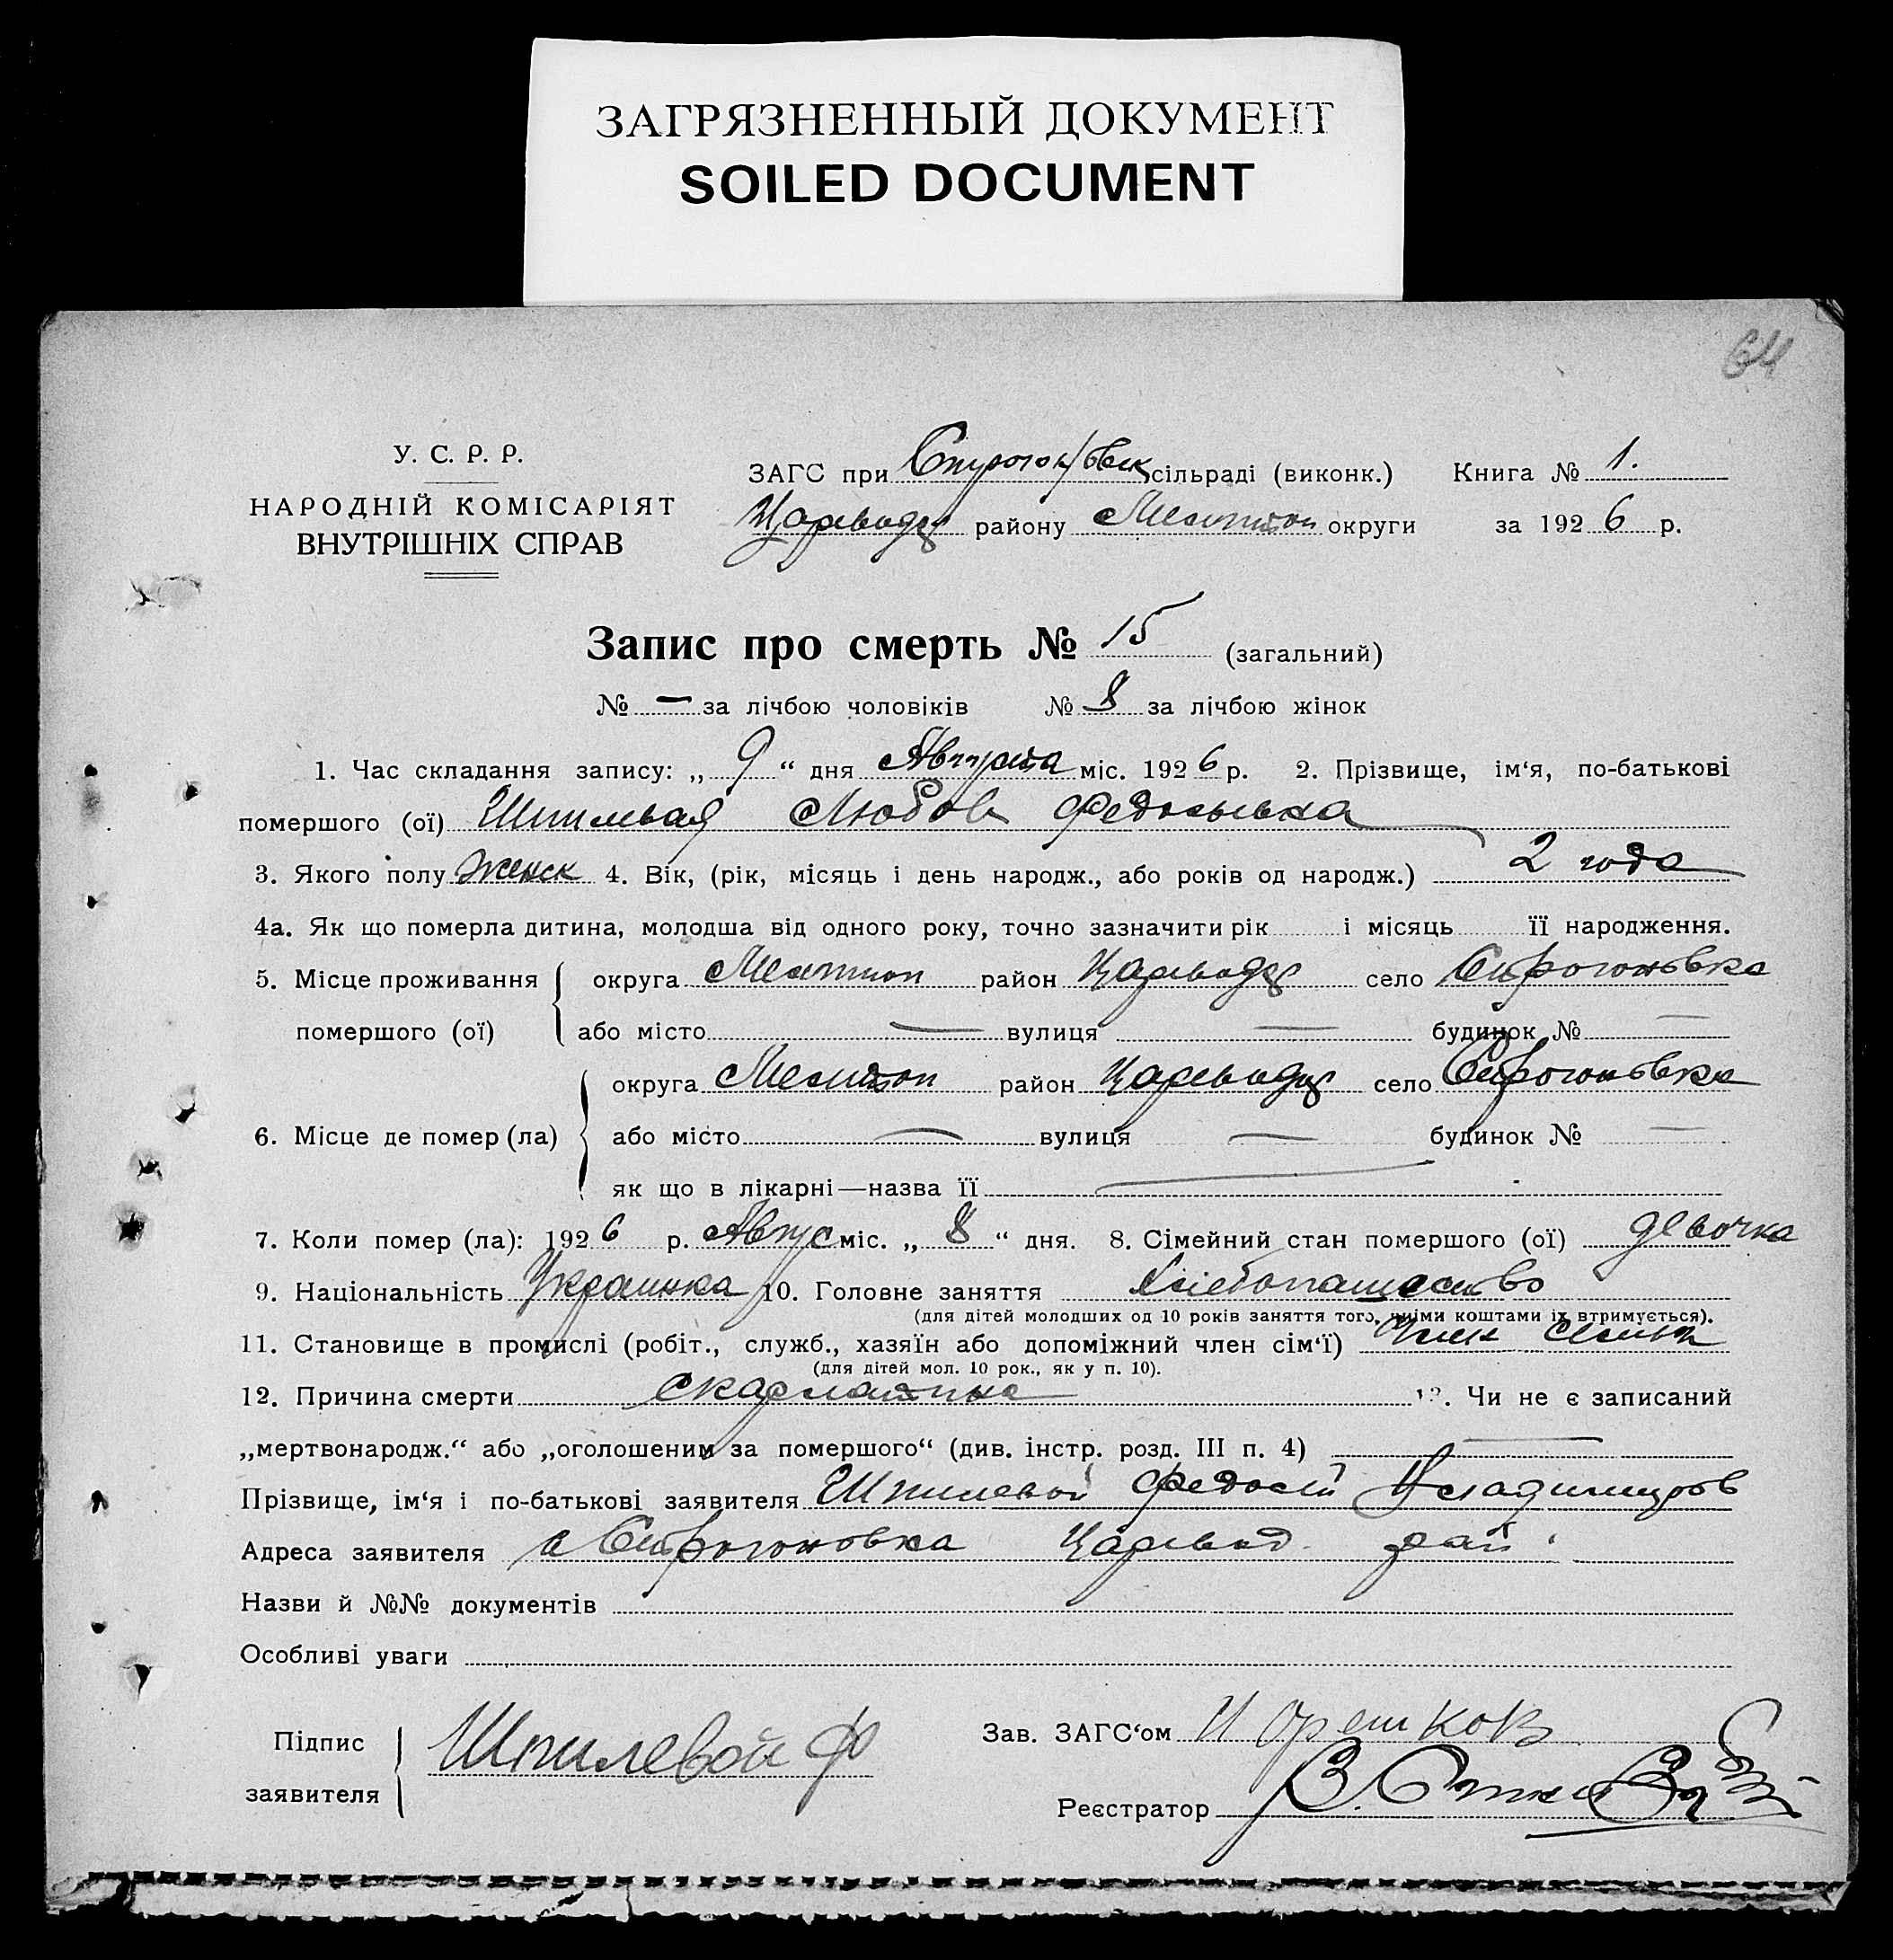 ЗАГРЯЗНЕННЫЙ ДОКУМЕНТ
SOILED DOCUMENT
64
У. С. Р. Р.
НАРОДНІЙ КОМІСАРІЯТ
ВНУТРІШНІХ СПРАВ
ЗАГС при сільраді (виконк.) Книга № 1.
району Мелитоп округи за 1926 р.
Запис про смерть № 15 (загальний)
№ — за лічбою чоловіків № 8 за лічбою жінок
1. Час складання запису: „ 9 “ дня Августа міс. 1926 р. 2. Прізвище, ім‘я, по-батькові
помершого (ої) Шпилевая Любовь Федосьевна
3. Якого полу женск 4. Вік, (рік, місяць і день народж., або років од народж.) 2 года
4а. Як що померла дитина, молодша від одного року, точно зазначити рік і місяць її народження.
5. Місце проживання округа Мелитоп район село
помершого (ої) або місто — вулиця — будинок № —
округа Мелитоп район село
6. Місце де помер (ла) або місто — вулиця — будинок № —
як що в лікарні—назва її —
7. Коли помер (ла): 1926 р. Август міс. „ 8 “ дня. 8. Сімейний стан помершого (ої) девочка
9. Національність Украинка 10. Головне заняття Хлебопашество
(для дітей молодших од 10 років заняття того, чиїми коштами їх втримується).
11. Становище в промислі (робіт., служб., хазяїн або допоміжний член сім‘ї) член семьи
(для дітей мол. 10 рок., як у п. 10).
12. Причина смерти скарлатина 13. Чи не є записаний
„мертвонародж.“ або „оголошеним за помершого“ (див. інстр. розд. III п. 4) —
Прізвище, ім‘я і по-батькові заявителя Шпилевой Федосий Владимиров
Адреса заявителя с Царевод рай
Назви й №№ документів
Особливі уваги
Підпис
заявителя
Шпилевой Ф
Зав. ЗАГС‘ом И Орешков
Реєстратор